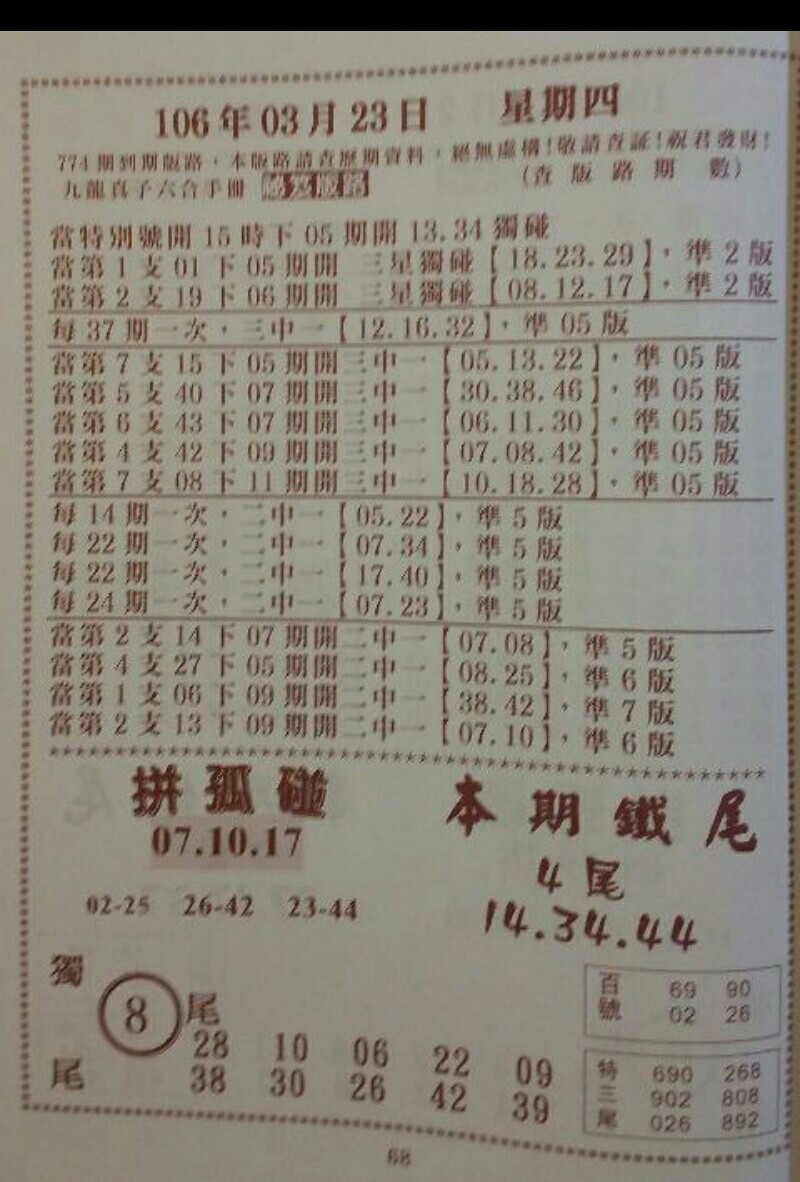 106年03月23日 星期四
774期到期版路，本版路請查歷期資料，絕無虛構！敬請查証！祝君發財！
九龍真子六合手冊 (查版路期數)
當特別號開15時下05期開13.34獨碰
當第1支01下05期開 三星獨碰【18.23.29】，準2版
當第2支19下06期開 三星獨碰【08.12.17】，準2版
每37期一次，三中一【12.16.32】，準05版
當第7支15下05期開三中一【05.13.22】，準05版
當第5支40下07期開三中一【30.38.46】，準05版
當第6支43下07期開三中一【06.11.30】，準05版
當第4支42下09期開三中一【07.08.42】，準05版
當第7支08下11期開三中一【10.18.28】，準05版
每14期一次，二中一【05.22】，準5版
每22期一次，二中一【07.34】，準5版
每22期一次，二中一【17.40】，準5版
每24期一次，二中一【07.23】，準5版
當第2支14下07期開二中一【07.08】，準5版
當第4支27下05期開二中一【08.25】，準6版
當第1支06下09期開二中一【38.42】，準7版
當第2支13下09期開二中一【07.10】，準6版
********************************************************
拼孤碰
07.10.17
02-25 26-42 23-44
本期鐵尾
4尾
14.34.44
獨 8 尾
尾
28 10 06 22 09
38 30 26 42 39
百號
69 90
02 26
特三尾
690 268
902 808
026 892
68